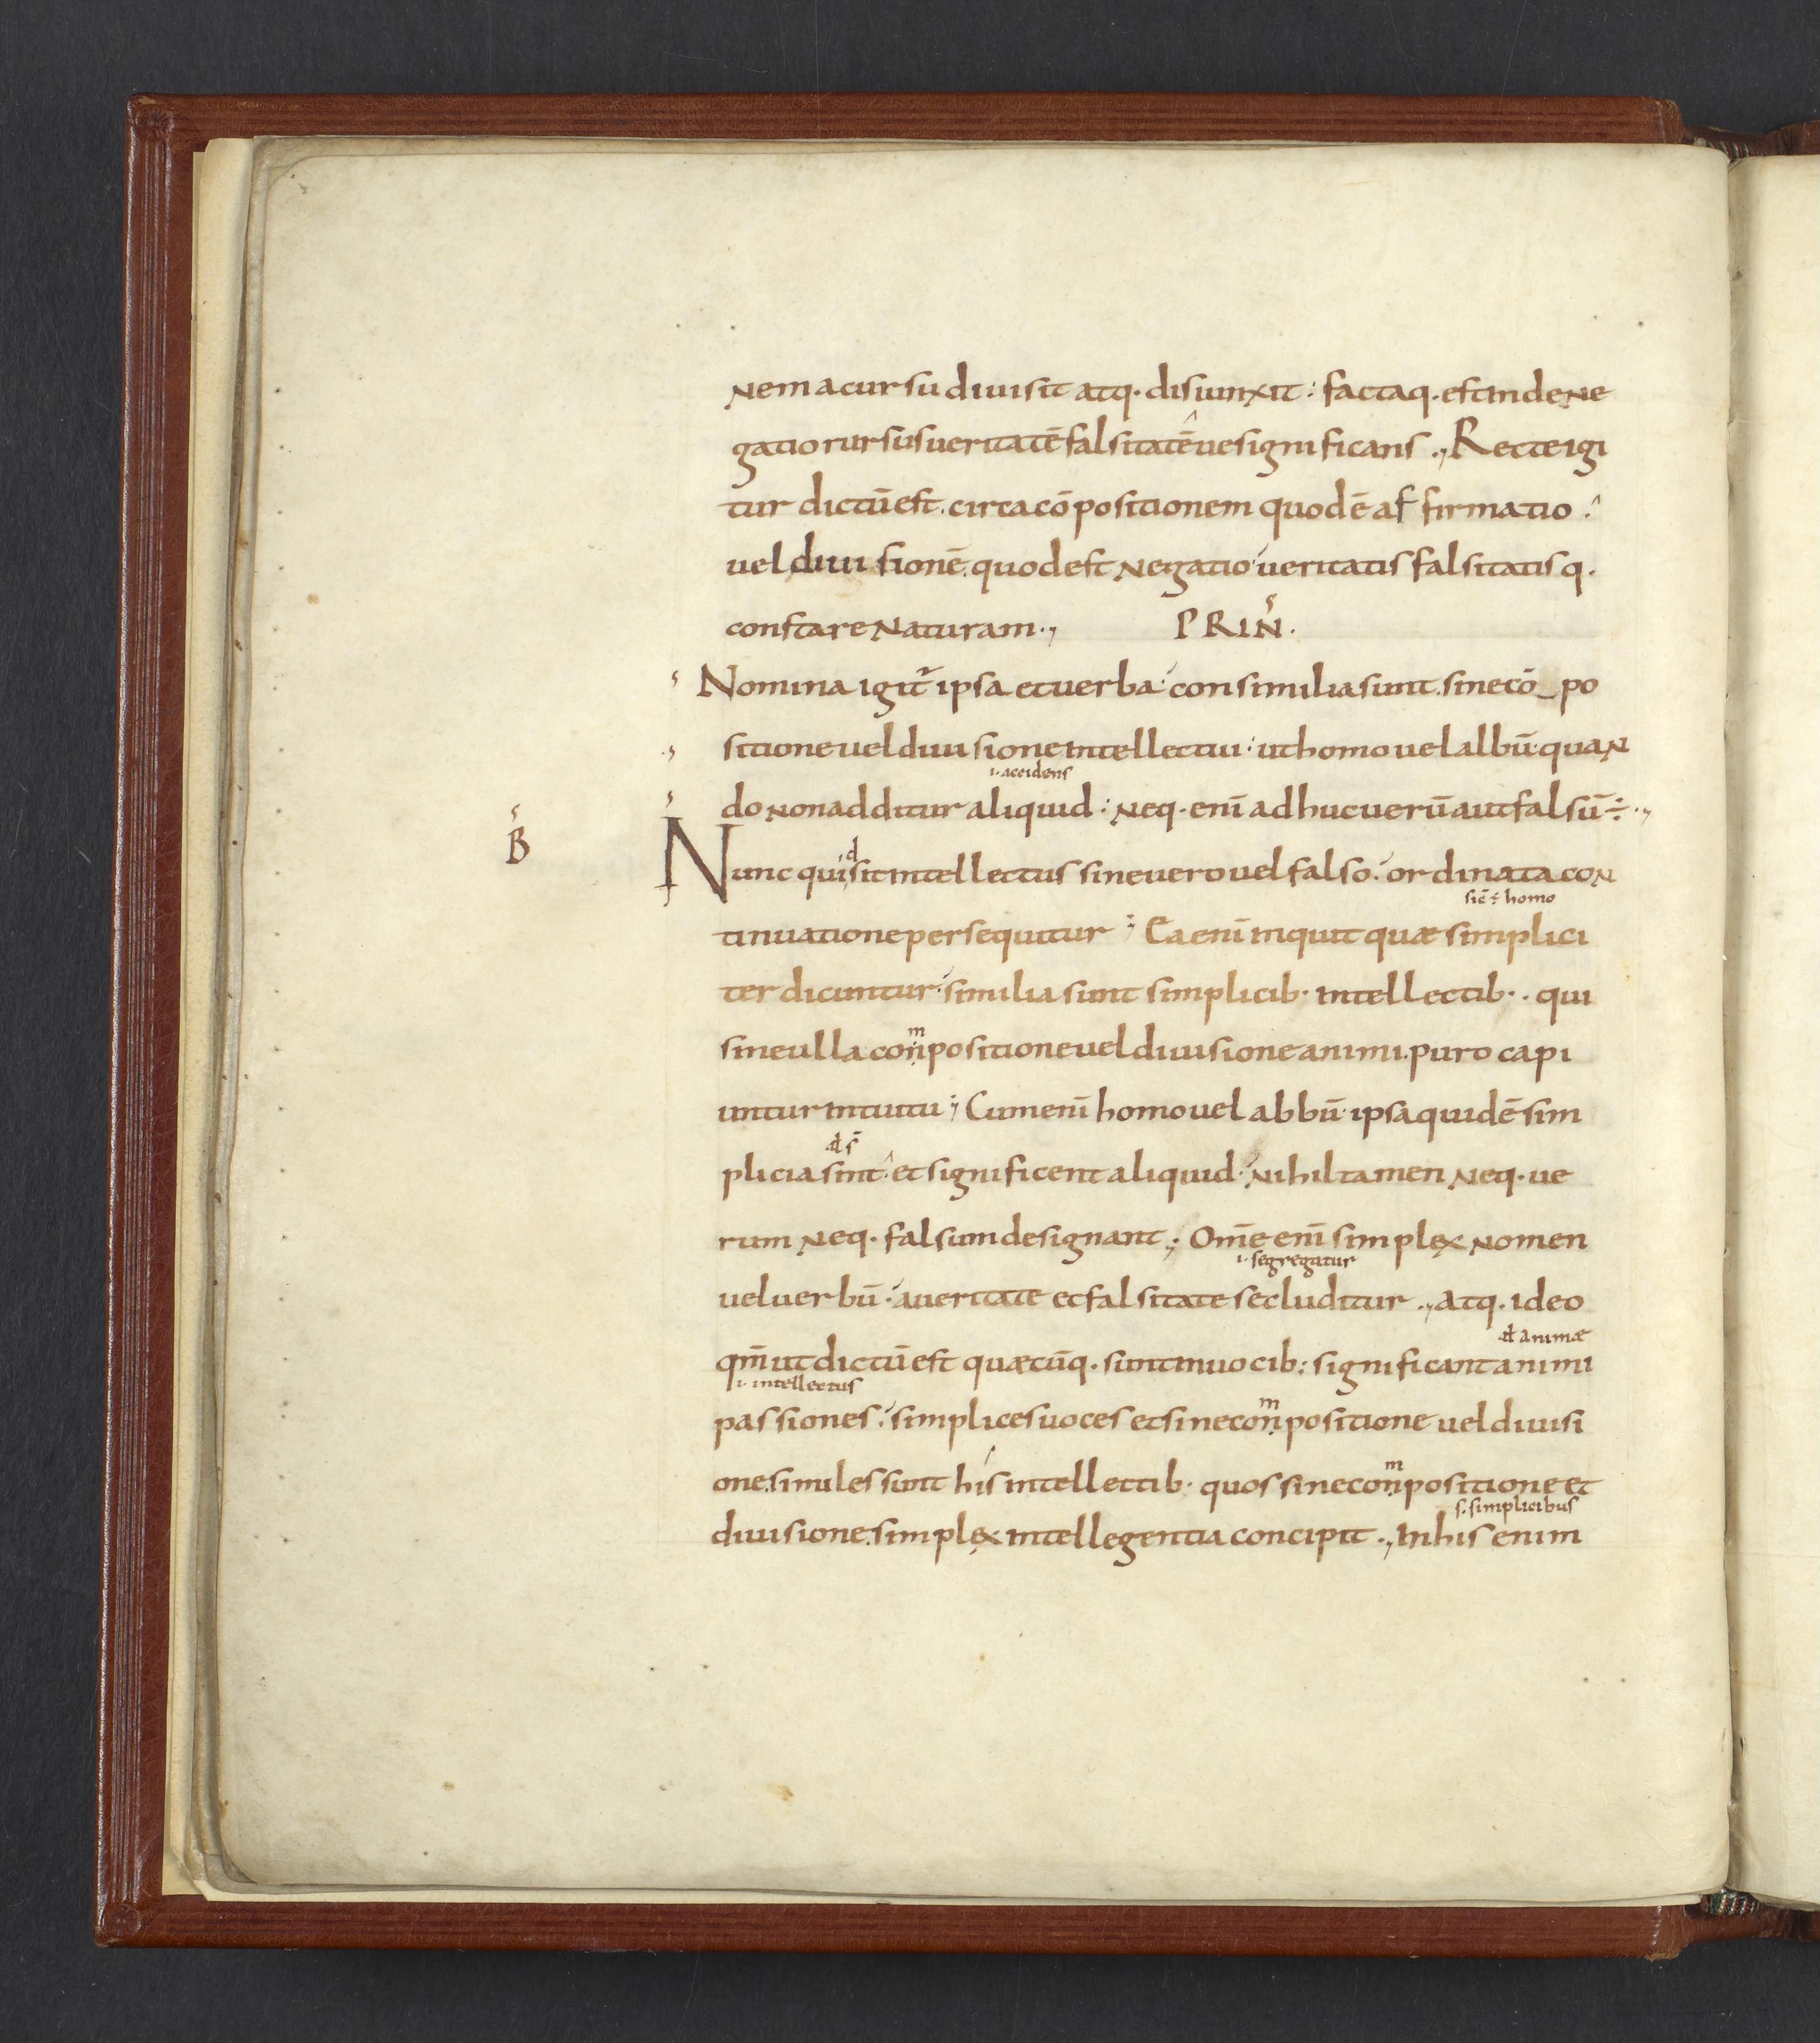 nem a cursu diuisit atq. disiunxit: factaq. est inde ne
gatio rursus ueritatē falsitatē ue significans ., Recte igi
tur dictū est. circa cō positionem quod ē af firmatio :
uel diui sionē. quod est negatio ueritatis falsitatis q.
constare naturam ., PRIN.
Nomina igit̃ ipsa et uerba: consimilia sunt. sine cō_po
sitione uel diui sione intellectui: ut homo uel albū. quan
i. accidens
do non additur aliquid: neq. eni᷄ adhuc uerū aut falsū ÷ .,
B
Nunc quid sit intellectus sine uero uel falso: ordinata con
sic̄ ÷ homo
tinuatione persequitur ; Ea enī inquit quæ simplici
ter dicuntur: similia sunt simplicib. intellectib. . qui
m
sine ulla conpositione uel diuisione animi. puro capi
untur intuitu ; Cum enī homo uel abbū: ipsa quidē sim
plicia sint: et significent aliquid: nihil tamen neq. ue
rum neq. falsum designant ; Om̄e enī simplex nomen
i. segregatur
uel uerbū: a ueritate et falsitate secluditur ., atq. ideo
animæ
qm̄ ut dictū est quæcūq. sunt in uocib: significant animi
i. intellectus
passiones: simplices uoces et sine conpositione uel diuisi
m
one. similes sunt his intellectib. quos sine conpositione et
m
s. simplicibus
diuisione. simplex intellegentia concipit ., In his enim